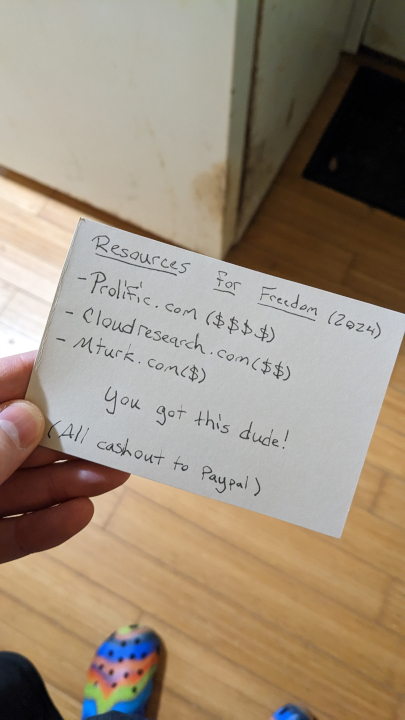 Resources for Freedom (2024)
- Prolific.com ($$$$)
- Cloudresearch.com ($$)
- Mturk.com ($)
You got this dude!
(All cashout to Paypal)